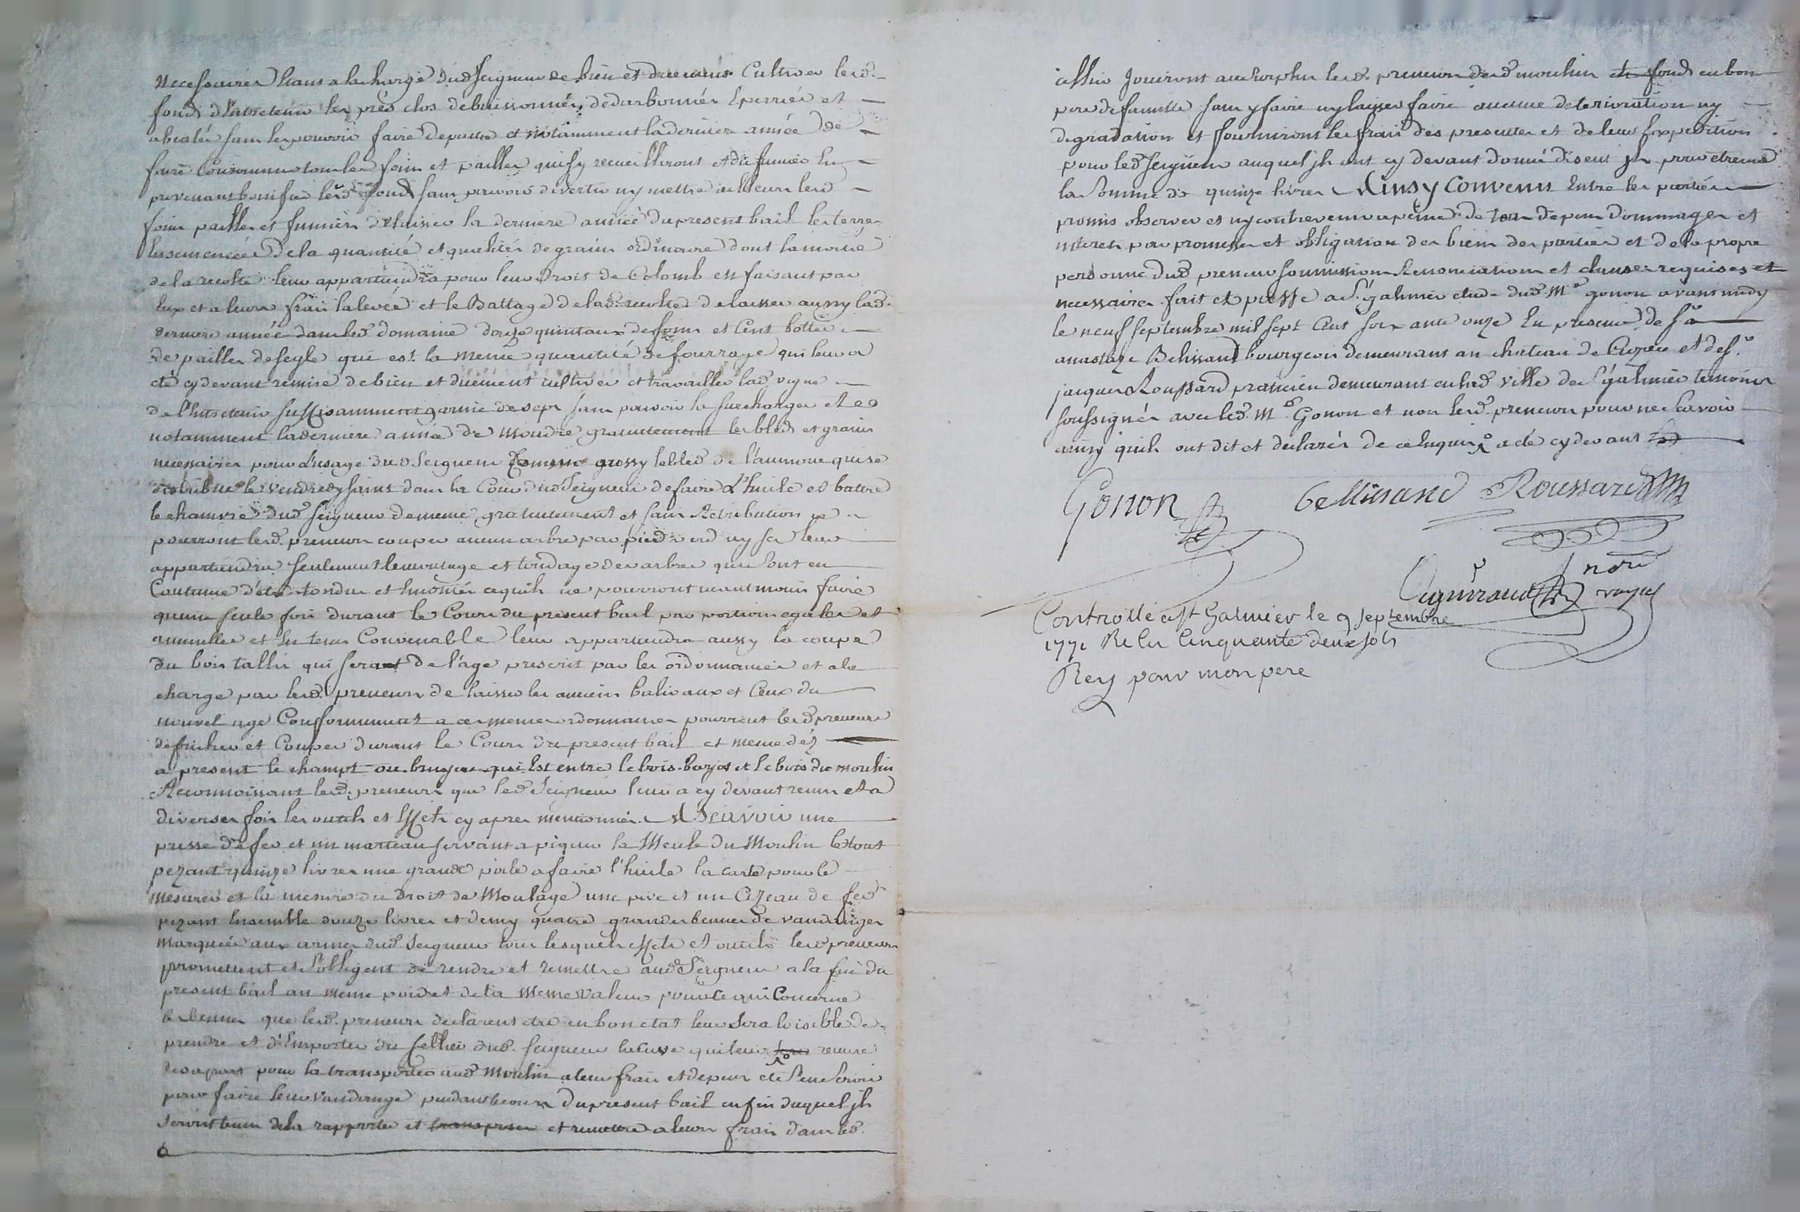 necessaires sans a la charge dud Seigneur de bien et duement Cultiver lesd.
fonds d'Entretenir les prés clos debuissonnés, dedarbonnés Eperriés et
abealés sans les pouvoir faire depaitre et notamment la derniere année de
faire Consommer tous les foins et pailles quisy recueilliront et du fumier En
provenant bonifier lesd. fonds sans pouvoir divertir ny mettre ailleurs lesd
foins pailles et fumiers de laisser la derniere année du present bail les terres
Ensemencées de la quantité et qualités de grains ordinaire dont la moitié
de la recolte leur appartiendra pour leur Droit de Colomb en faisant par
Eux et a leurs frais la levée et le Battage de lad. recolte de laisser aussy lad.
derniere année dans led. domaine douze quintaux de foins et Cent bottes
de pailles de segle qui est la meme quantité de fourrage qui leur a
eté cy devant remise de bien et duement cultiver et travailler lad. vigne
de l'Entretenir suffisamment garnie de seps sans pouvoir la surcharger et ce
notamment la derniere année de moudre gratuitement les bleds et grains
necessaires pour l'usage dud Seigneur Comme aussy le bled de l'aumone qui se
distribue le vendredy saint dans la Cour dud. Seigneur de faire l'huile et battre
le chanvre dud. Seigneur de meme gratuitement et sans Retribution ne
pourront lesd. preneurs couper aucun arbre par pied verd ny sec leur
appartiendra seulement l'emondage et tondage des arbres qui sont en
Coutume d'etre tondus et Emondés ce quils ne pourront neantmoins faire
quune seule fois durant le Cours du present bail par portions egales et
annuelles et En tems Convenable leur appartiendra aussy la coupe
du bois taillis qui sera de l'age prescrit par les ordonnances et a la
charge par lesd. preneurs de laisser les anciens balivaux et Ceux du
nouvel age Conformement a ces memes ordonnances pourront lesd preneurs
defricher et Couper durant le Cours du present bail et meme dés
a present le champt ou bruyere qui Est entre le bois et le bois du moulin
Reconnoissant lesd. preneurs que led. Seigneur leur a cy devant remis et a
diverses fois les outils et Effets cy apres mentionnés. A Scavoir une
presse de fer et un marteau servant a piquer la Meule du Moulin le tout
pezant quinze livres une grande poile a faire l'huile la carte pour le
mesurer et la mesure du Droit de Moulage une pive et un Cizeau de fer
pezant Ensemble douze livres et demy quatre grandes bennes de vandanges
marquées aux armes dud. Seigneur tous lesquels effets et outils lesd preneurs
promettent et s'obligent de rendre et remettre aud. Seigneur a la fin du
present bail au meme poid et de la meme valeur pour ce qui Concerne
les bennes que lesd. preneurs declarent etre en bon etat leur sera loisible de
prendre et d'Emporter du cellier dud. Seigneur la Cuve qui leur remise
pour la transporter aud. Moulin a leur frais et depens et s'en servir
pour faire leur vandange pendant le cours du present bail en fin duquel jls
seront tenus de la rapporter et et remettre a leurs frais dans led.
cellier Jouiront au surplus lesd. preneurs dud. moulin et fonds en bon
pere de famille sans y faire ny laisser faire aucune deterioration ny
degradation et fourniront les frais des presentes et de leur Expedition
pour led. Seigneur auquel jls ont cy devant donné disent jls pour etrenne
la Somme de quinze livres Ainsy Convenu Entre les parties
promis observer et ny contrevenir a peine de tous depens dommages et
interets par promesses et obligation des biens des parties et de la propre
personne dud. preneurs soumissions Renonciations et clauses requises et
necessaires fait et passé a St. galmier etude dud. Me. gonon avant midy
le neuf septembre mil sept Cent soixante onze En presence de Sr.
anastaze Belissand bourgeois demeurant au chateau de et de Sr.
jacques Roussard praticien demeurant en lad. ville de St. galmier temoins
soussignés avec led. Me. Gonon et non lesd. preneurs pour ne scavoir
ainsy quils ont dit et declarés de ce Enquis a été cy devant
Gonon Bellissand Roussard
Controllé a St Galmier le 9 septembre
1771 Reçu Cinquante deux sols
Rey pour mon pere